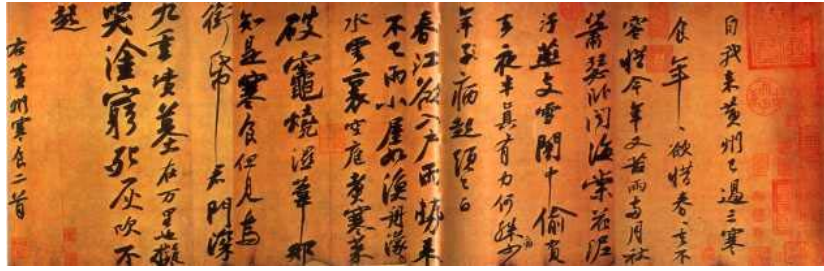 自我來黃州已過三寒
食年〻欲惜春〻去不
容惜今年又苦雨兩月秋
蕭瑟卧聞海棠花泥
汙燕支雪闇中偷負
去夜半真有力何殊少
病
年子病起頭已白
春江欲入戶雨勢來
不已雨小屋如漁舟濛〻
水雲裏空庖煮寒菜
破竈燒濕葦那
知是寒食但見烏
銜帋君門深
九重墳墓在万里也擬
哭塗窮死灰吹不
起
右黃州寒食二首